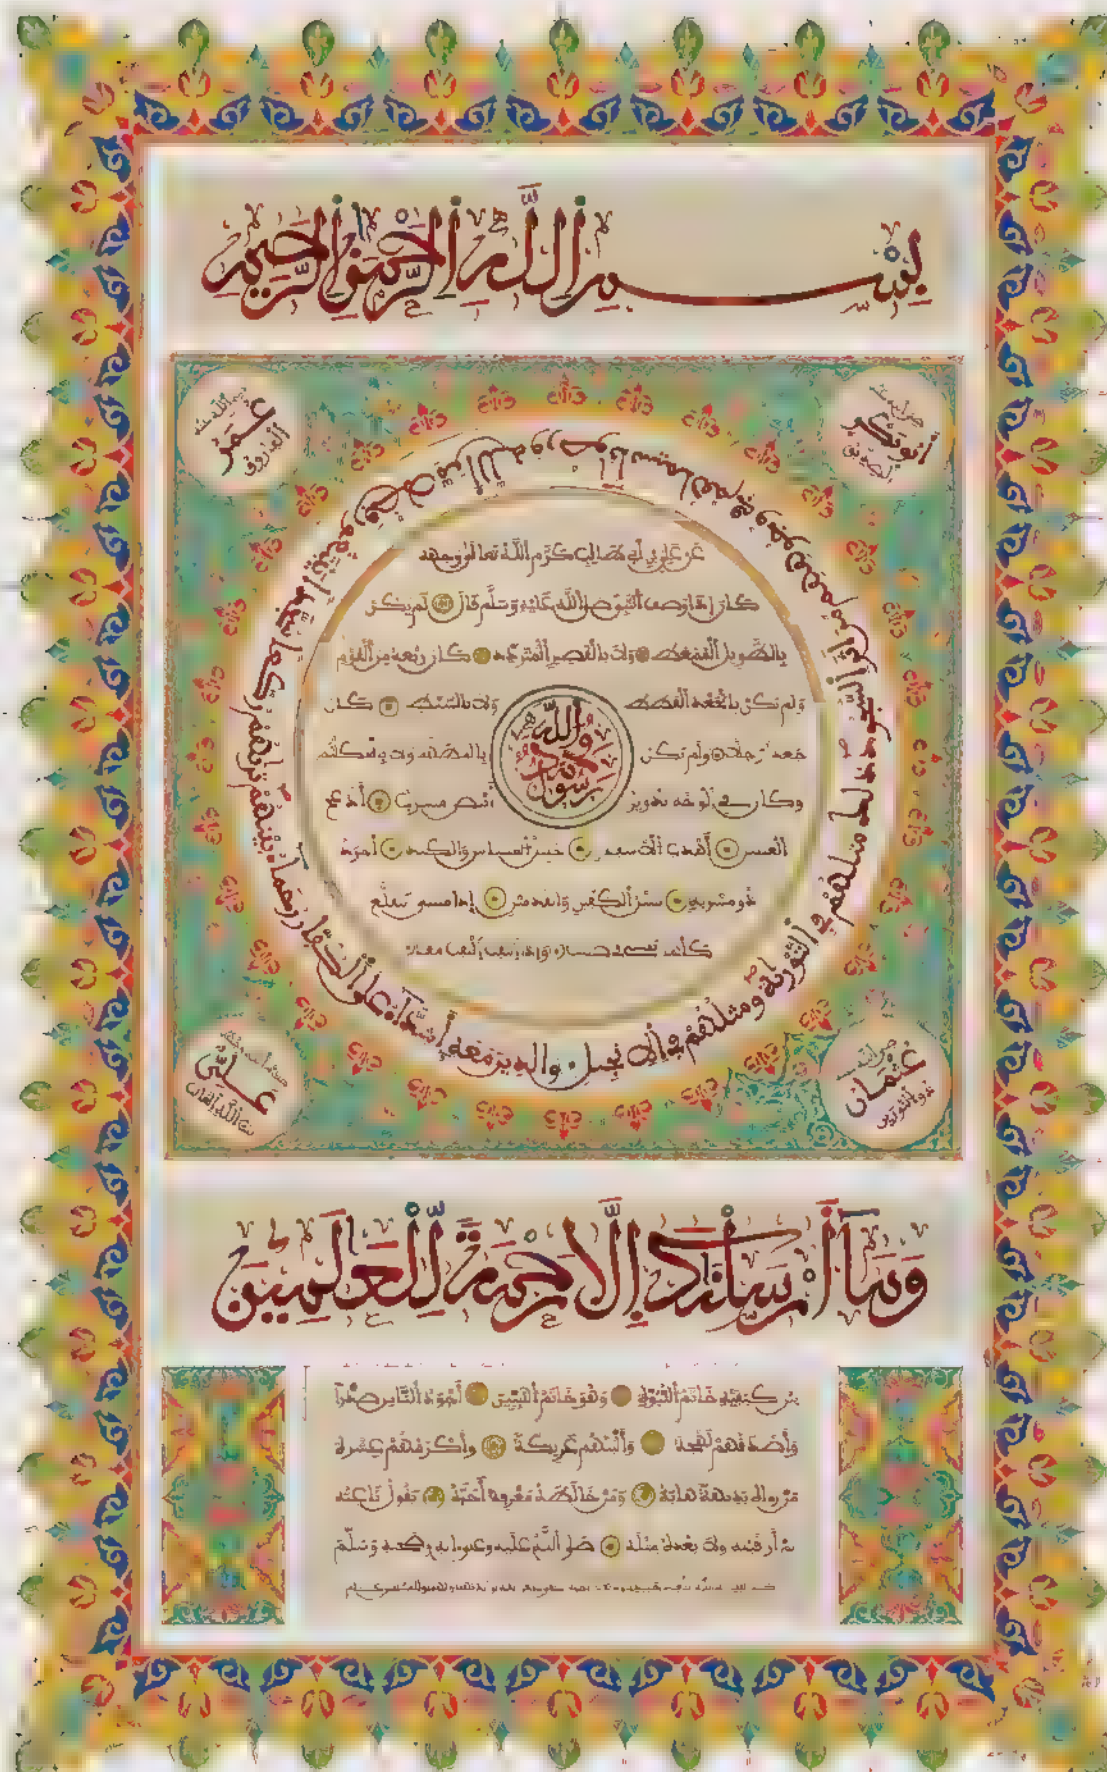 بِسْمِ اللَّهِ الرَّحْمَنِ الرَّحِيمِ
أبو بكر
الصديق
رضي الله عنه
عمر
الفاروق
والذين معه أشداء على الكفار رحماء بينهم تراهم ركعا سجدا يبتغون فضلا من الله ورضوانا سيماهم في وجوههم من أثر السجود ذلك مثلهم في التورية ومثلهم في الإنجيل
عن علي بن أبي طالب كرم الله تعالى وجهه
كان إذا وصف النبي صلى الله عليه وسلم قال لم يكن
بالطويل الممغط ولا بالقصير المتردد كان ربعة من القوم
ولم يكن بالجعد القطط ولا بالسبط كان
جعدا رجلا ولم يكن بالمطهم ولا بالمكلثم
وكان في الوجه تدوير أبيض مشرب أدعج
العينين أهدب الأشفار جليل المشاش والكتد أجرد
ذو مسربة شثن الكفين والقدمين إذا مشى تقلع
الله
رسول
عثمان
ذو النورين
علي
وَمَا أَرْسَلْنَاكَ إِلَّا رَحْمَةً لِّلْعَالَمِينَ
بين كتفيه خاتم النبوة وهو خاتم النبيين أجود الناس صدرا
وأصدقهم لهجة وألينهم عريكة وأكرمهم عشرة
من رءاه بديهة هابه ومن خالطه معرفة أحبه يقول ناعته
لم أر قبله ولا بعده مثله صلى الله عليه وسلم